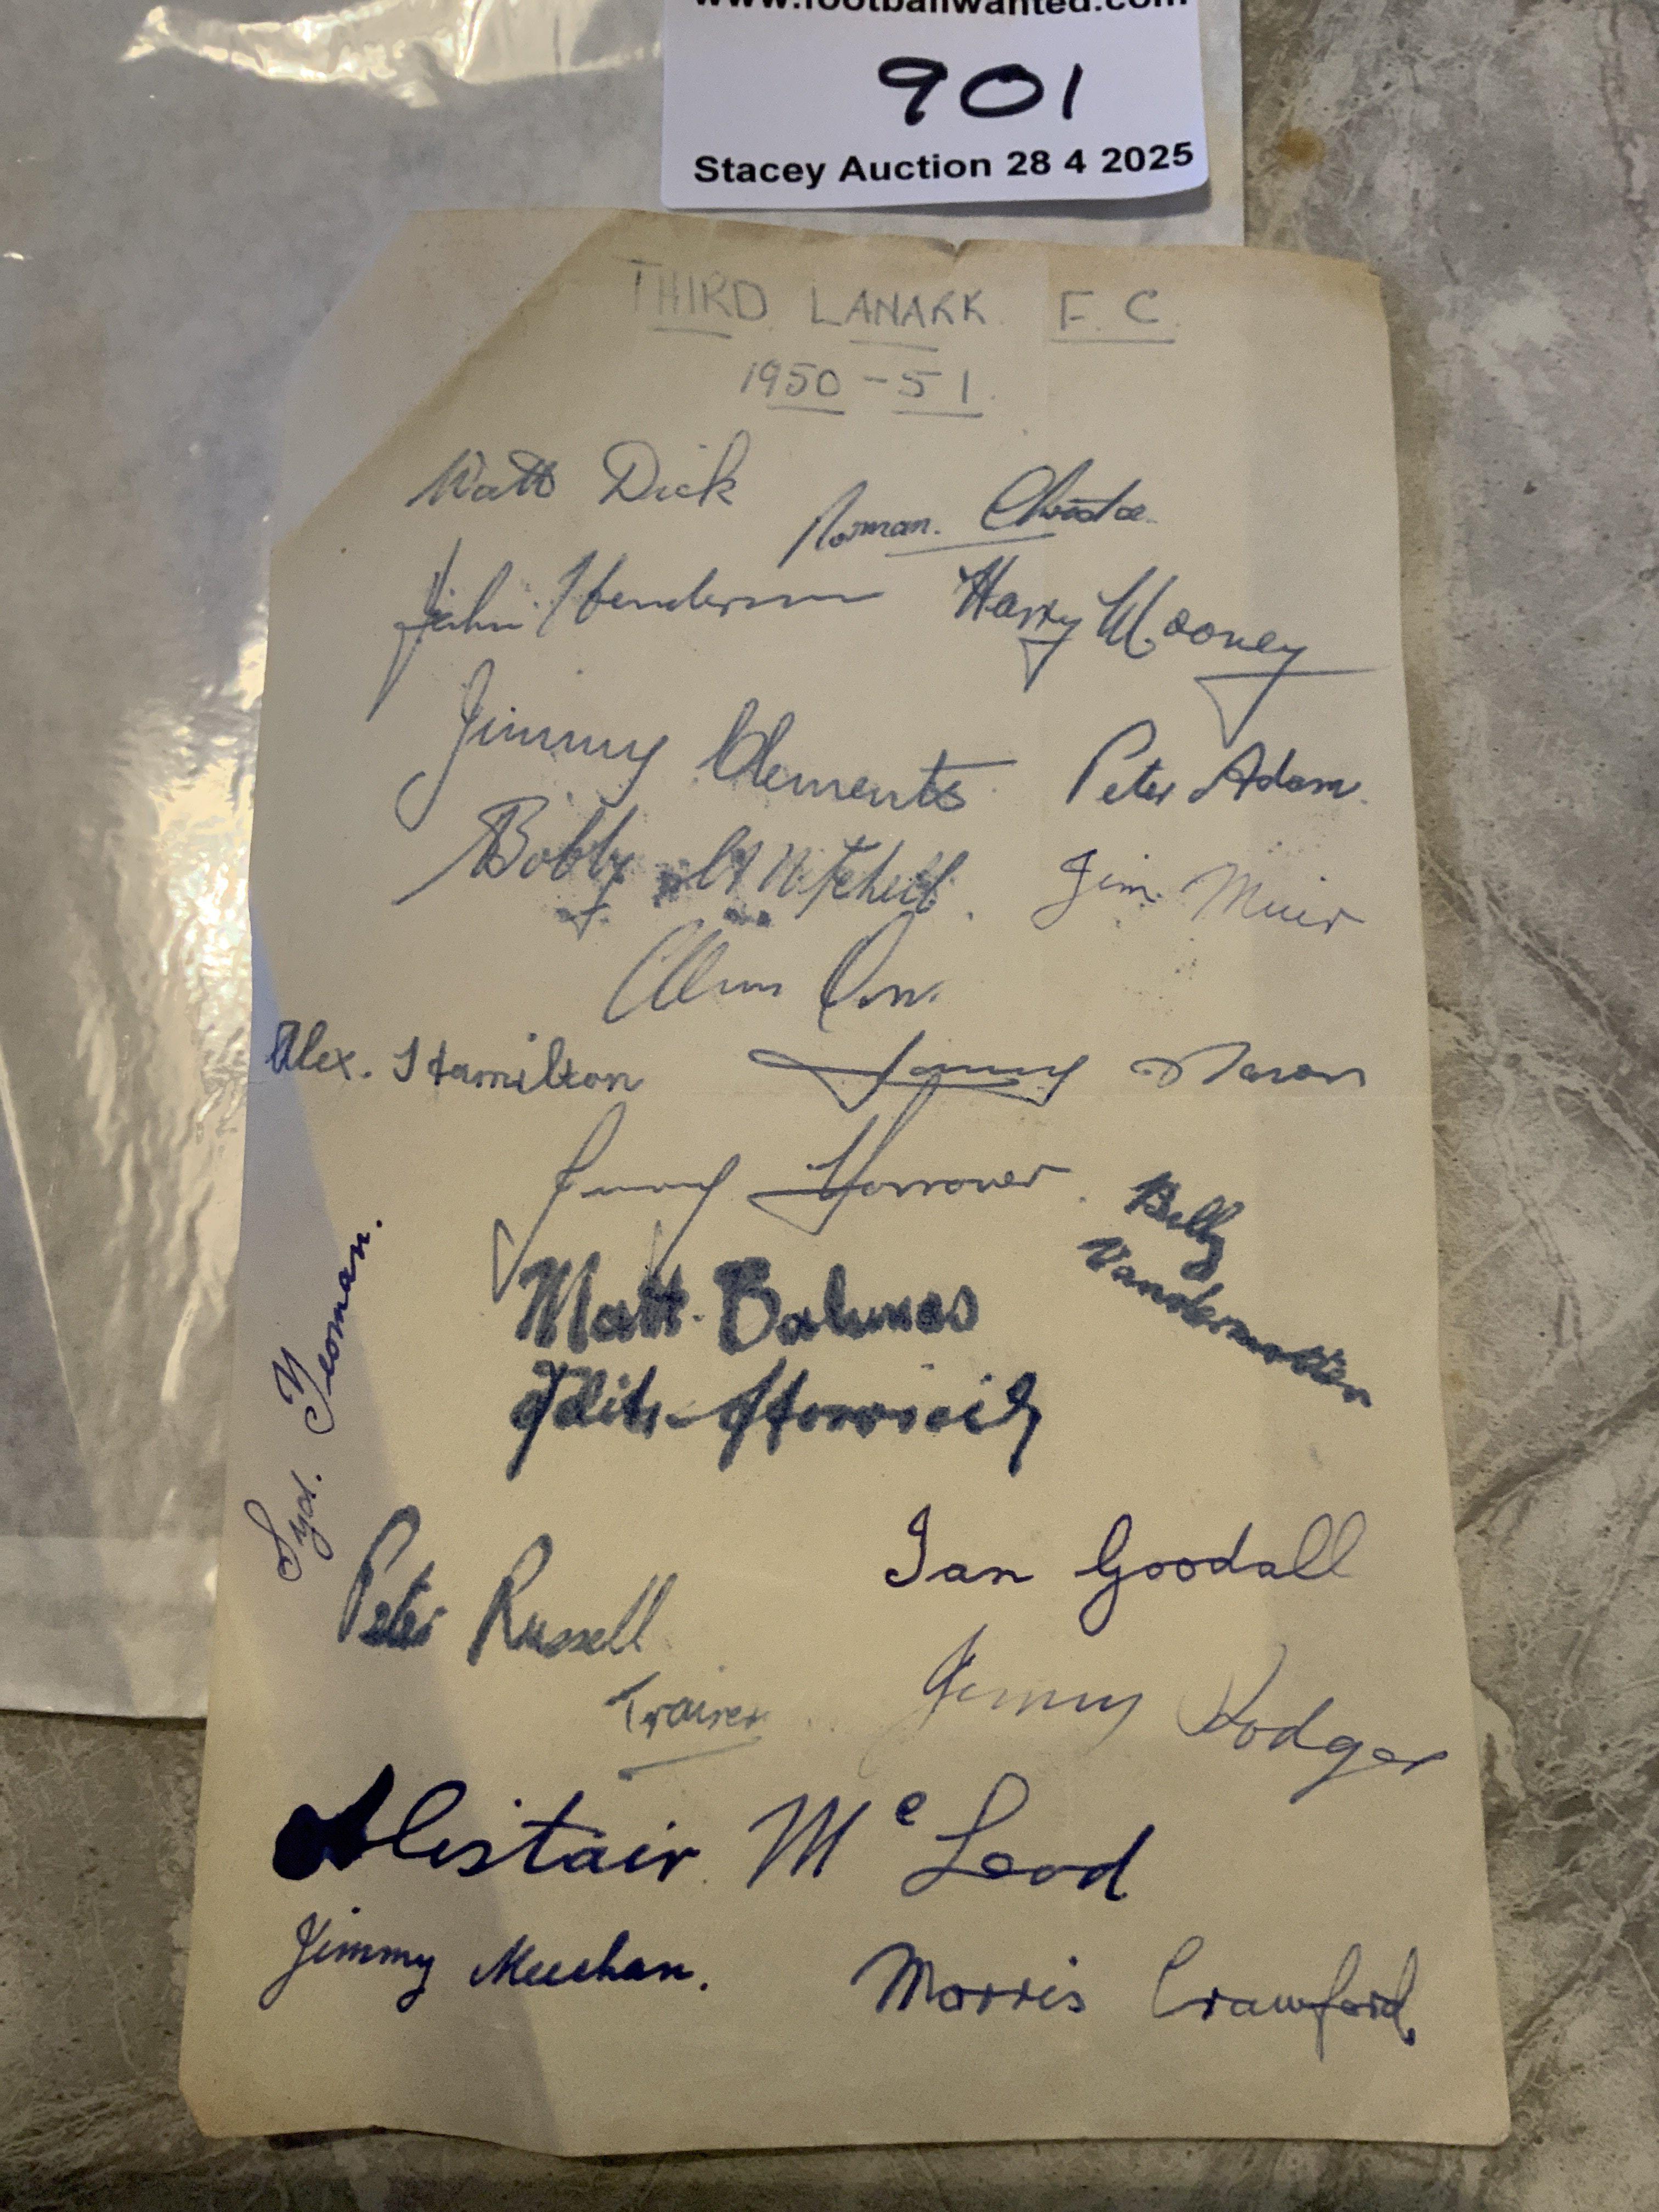 www.footballwanted.com
901
Stacey Auction 28 4 2025
THIRD LANARK F.C.
1950-51
Matt Dick
Norman Christie
John Henderson
Harry Mooney
Jimmy Clements
Peter Adam
Bobby Mitchell
Jim Muir
Orr
Alex. Hamilton
Jimmy Mason
Jimmy Harrower
Billy
Vandermotten
Matt. Balunas
Syd. Yeoman.
Peter Russell
Trainer
Ian Goodall
Jimmy Hodge
Alistair McLeod
Jimmy Meechan.
Morris Crawford.